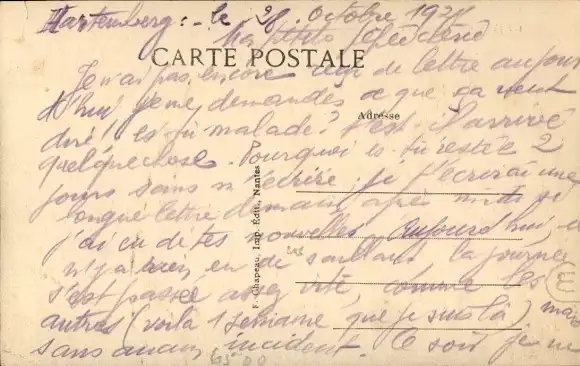 le 28 Octobre 19
Ma petite
CARTE POSTALE
Je n'ai pas encore reçu de lettre aujour
d'hui je me demandes ce que ça veut
dire! es tu malade? t'est il arrivé
Adresse
quelque chose. Pourquoi es tu restée 2
jours sans m'écrire, je t'écrirai une
longue lettre demain après midi si
j'ai eu de tes nouvelles. Aujourd'hui, il
n'y a rien eu de saillant la journée
s'est passée assez vite, comme les
autres (voilà 1 semaine que je suis là) mais
sans aucun incident. Ce soir je ne
F. Chapeau, Imp. Édit., Nantes